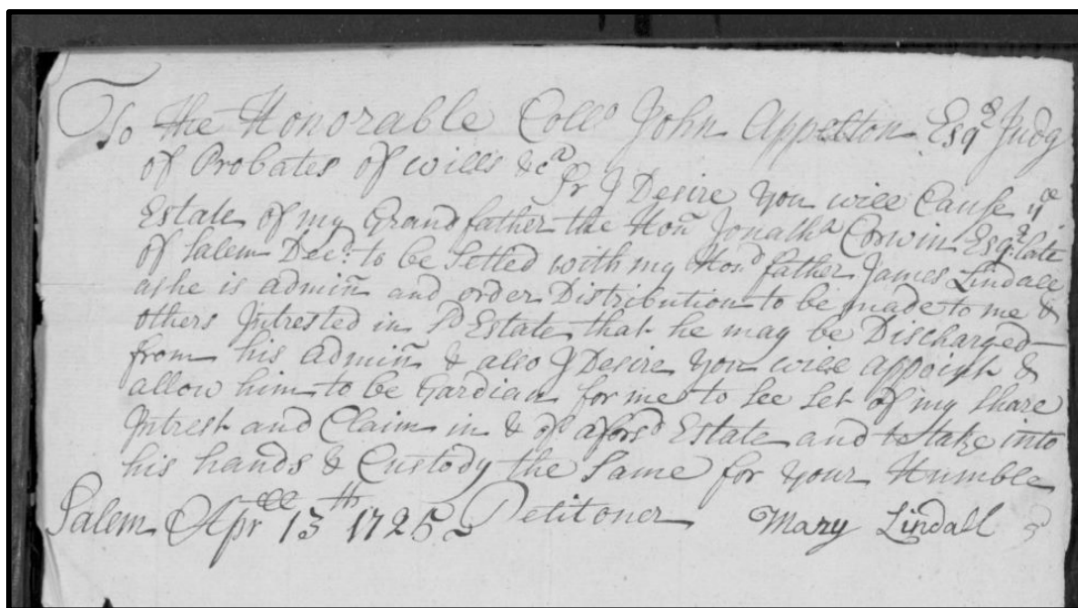 To the Honorable Collo John Appelton Esqr Judg
of Probates of wills &ca
Sr I Desire you will Cause ye
Estate of my Grandfather the Honr Jonatha Corwin Esqr late
of Salem Decd: to be Setled with my Hond father James Lindall
as he is adminr and order Distribution to be made to me &
others Intrested in sd Estate that he may be Discharged
from his adminn & also I Desire you will appoint &
allow him to be Gardian for me to see set of my share
Intrest and Claim in & of aforsd Estate and to take into
his hands & Custody the Same for your Humble
Salem Aprill 13th 1725 Petitoner Mary Lindall